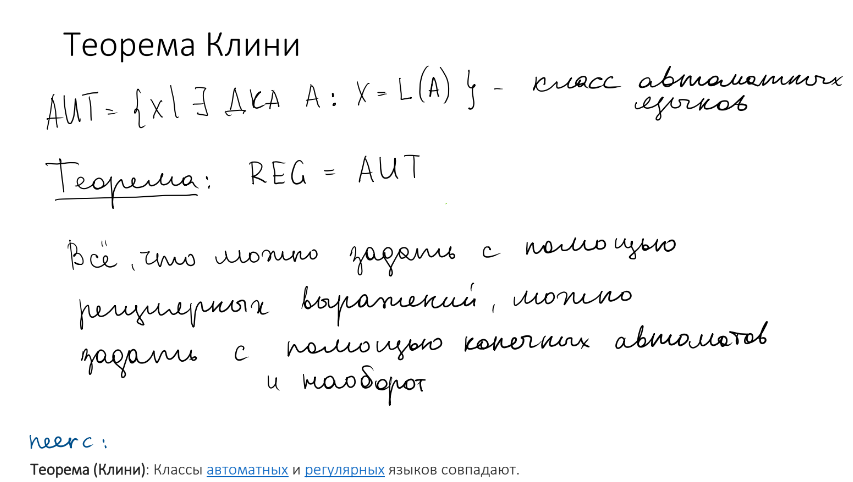 Теорема Клини
AUT = { X | ∃ ДКА A : X = L(A) } - класс автоматных
языков
Теорема: REG = AUT
Всё, что можно задать с помощью
регулярных выражений, можно
задать с помощью конечных автоматов
и наоборот
neerc :
Теорема (Клини): Классы автоматных и регулярных языков совпадают.